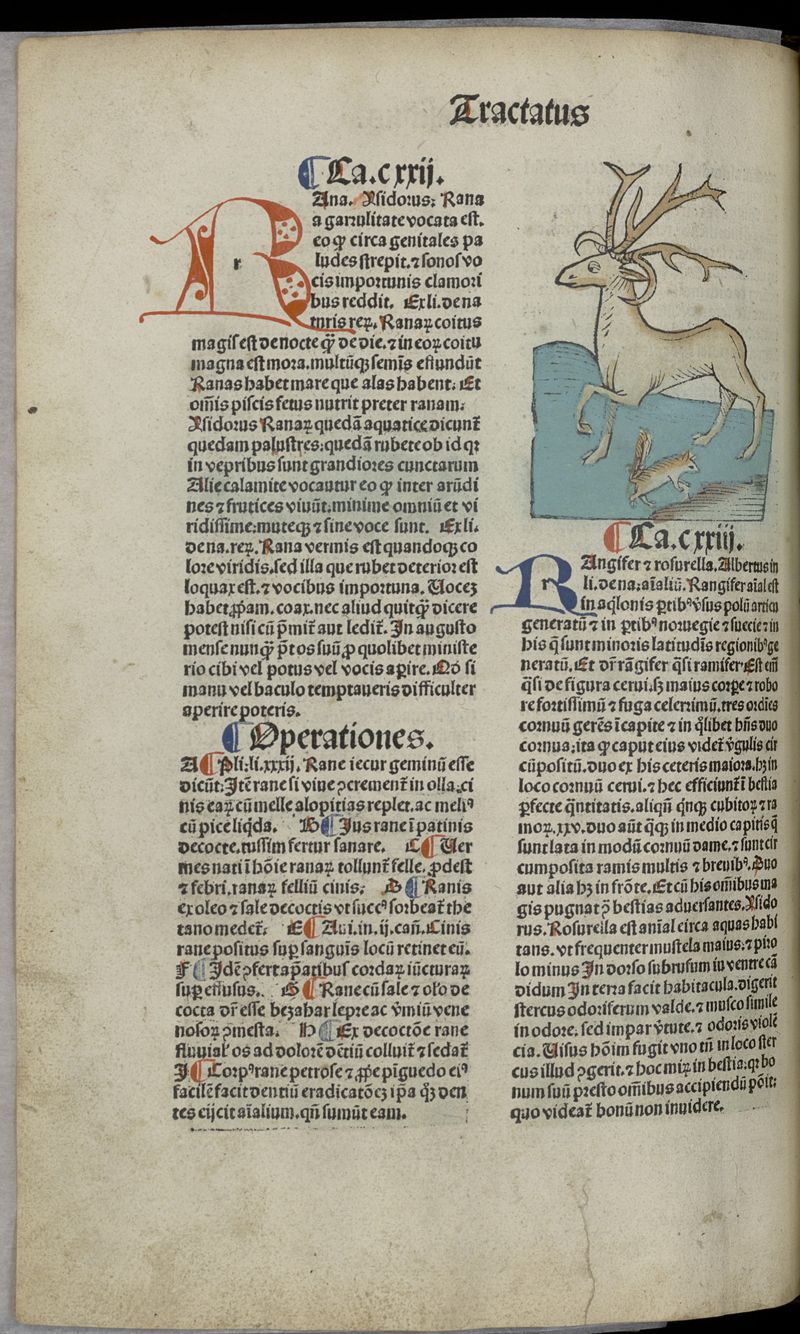 Tractatus
¶ Ca. cxxij.
R
r
Ana. Ysidorus: Rana
a garrulitate vocata est.
eo ꝙ circa genitales pa
ludes strepit. ⁊ sonos vo
cis importunis clamori
bus reddit. Ex li. de na
turis reꝝ. Ranaꝝ coitus
magis est de nocte qꝫ̃ de die. ⁊ in eoꝝ coitu
magna est mora. multũqꝫ semĩs effundũt
Ranas habet mare que alas habent. Et
om̃is piscis fetus nutrit preter ranam.
Ysidorus Ranaꝝ quedã aquatice dicunt̃
quedam palustres: quedã rubete ob id qꝛ
in vepribus sunt grandiores cunctarum
Alie calamite vocantur eo ꝙ inter arũdi
nes ⁊ frutices viuũt. minime omniũ et vi
ridissime: muteqꝫ ⁊ sine voce sunt. Ex li.
de na. reꝝ. Rana vermis est quandoqꝫ co
lore viridis. sed illa que rubet deterior est
loquax est. ⁊ vocibus importuna. Uoceꝫ
habet ꝓpam. coax. nec aliud quitqꝫ̃ dicere
potest nisi cũ p̃mit̃ aut ledit̃. In augusto
mense nunqꝫ̃ p̃t os suũ ꝓ quolibet ministe
rio cibi vel potus vel vocis apire. Qd̃ si
manu vel baculo temptaueris difficulter
aperire poteris.
¶ Operationes.
A ¶ Pli. li. xxxij. Rane iecur geminũ esse
dicũt: Itẽ rane si viue ꝯcrement̃ in olla. ci
nis eaꝝ cũ melle alopitias replet. ac meliꝰ
cũ pice liq̃da. B ¶ Jus rane ĩ patinis
decocte. tussim fertur sanare. C ¶ Uer
mes nati ĩ hoĩe ranaꝝ tollunt̃ felle. ꝓdest
⁊ febri. ranaꝝ felliũ cinis: D ¶ Ranis
ex oleo ⁊ sale decoctis vt succꝰ sorbeat̃ the
tano medet̃. E ¶ Aui. in. ij. cañ. Cinis
rane positus suꝑ sanguis locũ retinet eũ.
F ¶ Idẽ ꝯfert aꝑatibus cordaꝝ iũcturaꝝ
suꝑ effusus. G ¶ Rane cũ sale ⁊ oĺo de
cocta dr̃ esse bezahar lepre ac ꝟmiũ vene
nosoꝝ ꝯmesta. H ¶ Ex decoctõe rane
fluuiaĺ os ad dolorẽ dẽtiũ colluit̃ ⁊ sedat̃
J ¶ Corpꝰ rane petrose ⁊ ꝓpe pĩguedo eiꝰ
facilẽ facit dentiũ eradicatõeꝫ ip̃a qꝫ̃ den
tes eijcit aĩalium. qñ sumũt eam.
¶ Ca. cxxiij.
R
r
Angifer ⁊ rosurella. Albertus in
li. de na: aĩaliũ. Rangifer aĩal est
in aq̃lonis ꝑtibꝰ ꝟsus polũ articũ
generatũ ⁊ in ꝑtibꝰ norwegie ⁊ suecie ⁊ in
his q̃ sunt minoris latitudĩs regionibꝰ ge
neratũ. Et dr̃ rãgifer q̃si ramifer. Est em̃
q̃si de figura cerui. sꝫ maius corꝑe ⁊ robo
re fortissimũ ⁊ fuga celerrimũ. tres ordĩes
cornuũ gerẽs ĩ capite ⁊ in q̃libet hñs duo
cornua: ita ꝙ caput eius videt̃ ꝟgulis cir
cũpositũ. duo ex his ceteris maiora. hꝫ in
loco cornuũ cerui. ⁊ hec efficiunt̃ ĩ bestia
ꝑfecte q̃ntitatis. aliqñ q̃nqꝫ cubitoꝝ ⁊ ra
moꝝ. xxv. duo aũt qꝫqꝫ in medio capitis q̃
sunt lata in modũ cornuũ dame. ⁊ sunt cir
cumposita ramis multis ⁊ breuibꝰ. Duo
aut alia hꝫ in frõte. Et cũ his om̃ibus ma
gis pugnat ꝯ̃ bestias aduersantes. Ysido
rus. Rosurella est anĩal circa aquas habi
tans. vt frequenter mustela maius: ⁊ piro
lo minus In dorso subrufum in ventre cã
didum In terra facit habitacula. digerit
stercus odoriferum valde. ⁊ musco simile
in odore. sed impar ꝟtute. ⁊ odoris violẽ
cia. Uisus hoĩm fugit vno tñ in loco ster
cus illud ꝯgerit. ⁊ hoc miꝝ in bestia. qꝛ bo
num suũ presto om̃ibus accipiendũ põit:
quo videat̃ bonũ non inuidere.